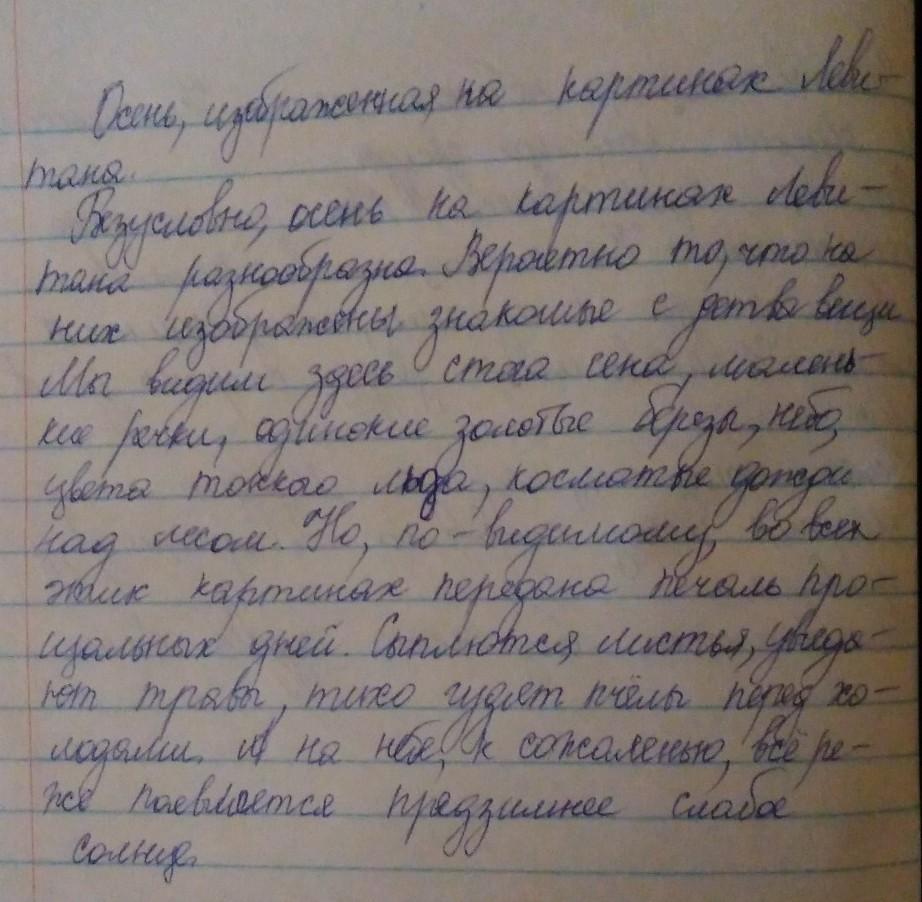 Осень, изображенная на картинах Леви-
тана.
Безусловно, осень на картинах Леви-
тана разнообразна. Вероятно то, что на
них изображены знакомые с детва вещи
Мы видим здесь стога сена, малень-
кие речки, одинокие золотые березы, небо,
цвета тонкого льда, косматые дожди
над лесом. Но, по-видимому, во всех
этих картинах передана печаль про-
щальных дней. Сыплются листья, увяда-
ют травы, тихо гудят пчёлы перед хо-
лодами. А на небе, к сожаленью, всё ре-
же появляется предзимнее слабое
солнце.